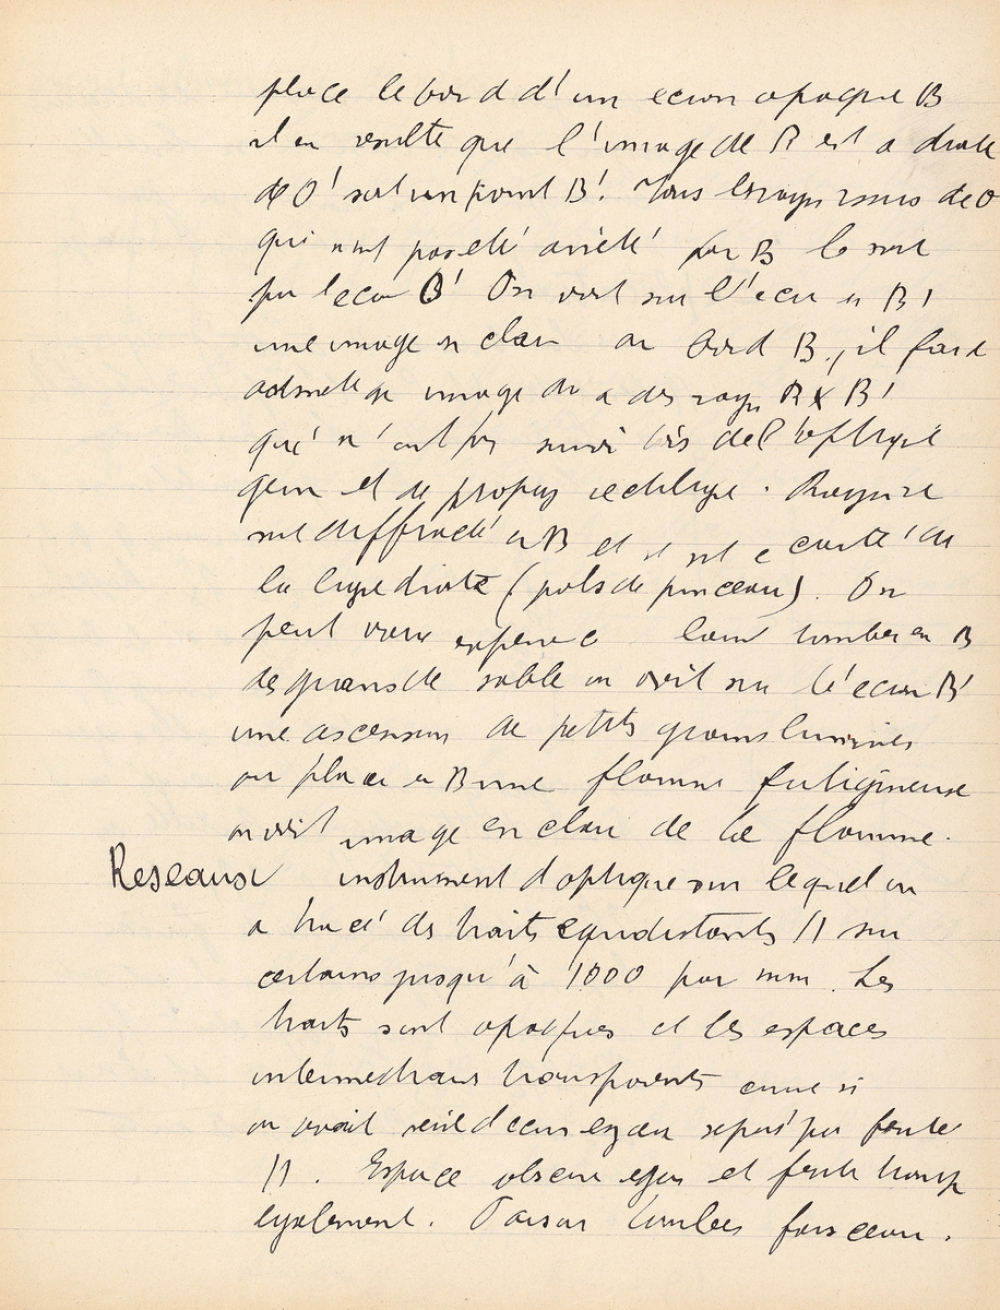 place le bord d'un ecran opaque B
il en resulte que l'image de R est a droite
de O' soit un point B'. Tous les rayons issus de O
qui n'ont pas été arrêté par B le sont
par l'ecran B' On voit sur l'ecran en B'
une image en clair du bord B, il faut
admettre image du a des rayons R B'
qui n'ont pas suivi lois de l'optique
geom et de propag rectiligne. Rayon
est diffracté en B et il est ecarté de
la ligne droite (poils de pinceau). On
peut varier experience laissant tomber en B
des grains de sable on voit sur l'écran B'
une ascension de petits grains lumineux
on place en B une flamme fuligineuse
on voit image en clair de la flamme.
Reseaux instrument d optique sur lequel on
a tracé des traits equidistants // sur
certains jusqu'à 1000 par mm. Les
traits sont opaques et les espaces
intermediaires transparents comme si
on avait serie d ecrans egaux separés par fente
//. Espace obscur egaux et fente transp
egalement. Faisons tomber faisceau.